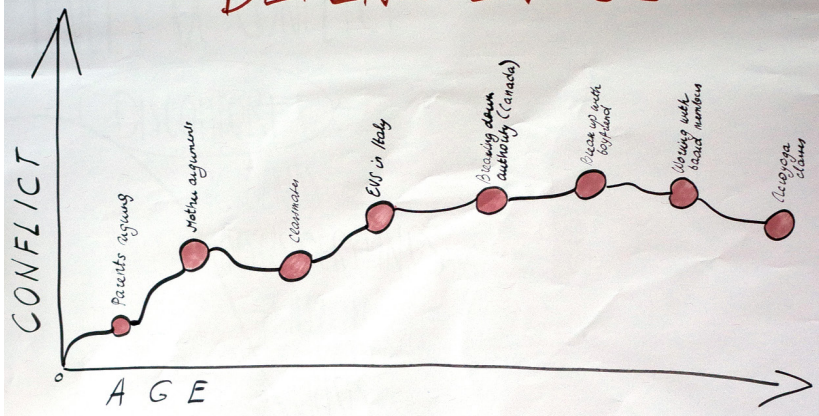 CONFLICT
Parents arguing
Mother arguments
Classmates
EVS in Italy
Breaking down
authority (Canada)
Break up with
boyfriend
Working with
board members
Acroyoga
classes
0
AGE